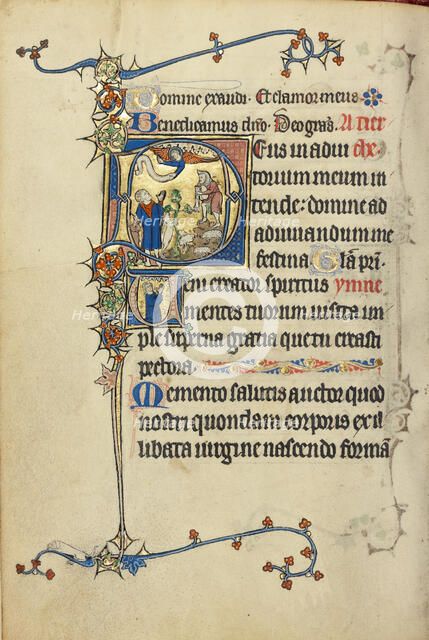 Domine exaudi · Et clamor meus
Benedicamus dño · Deo gras̃ A tier
Deus in adiu
torium meum in
tende : domine ad
adiuuandum me
festina Glã pri̾
Ueni creator spiritus ymne
mentes tuorum uisita im
ple superna gratia que tu creasti
pectora
Memento salutis auctor quod
nostri quondam corporis ex il
libata uirgine nascendo formã
Heritage
Heritage
Heritage